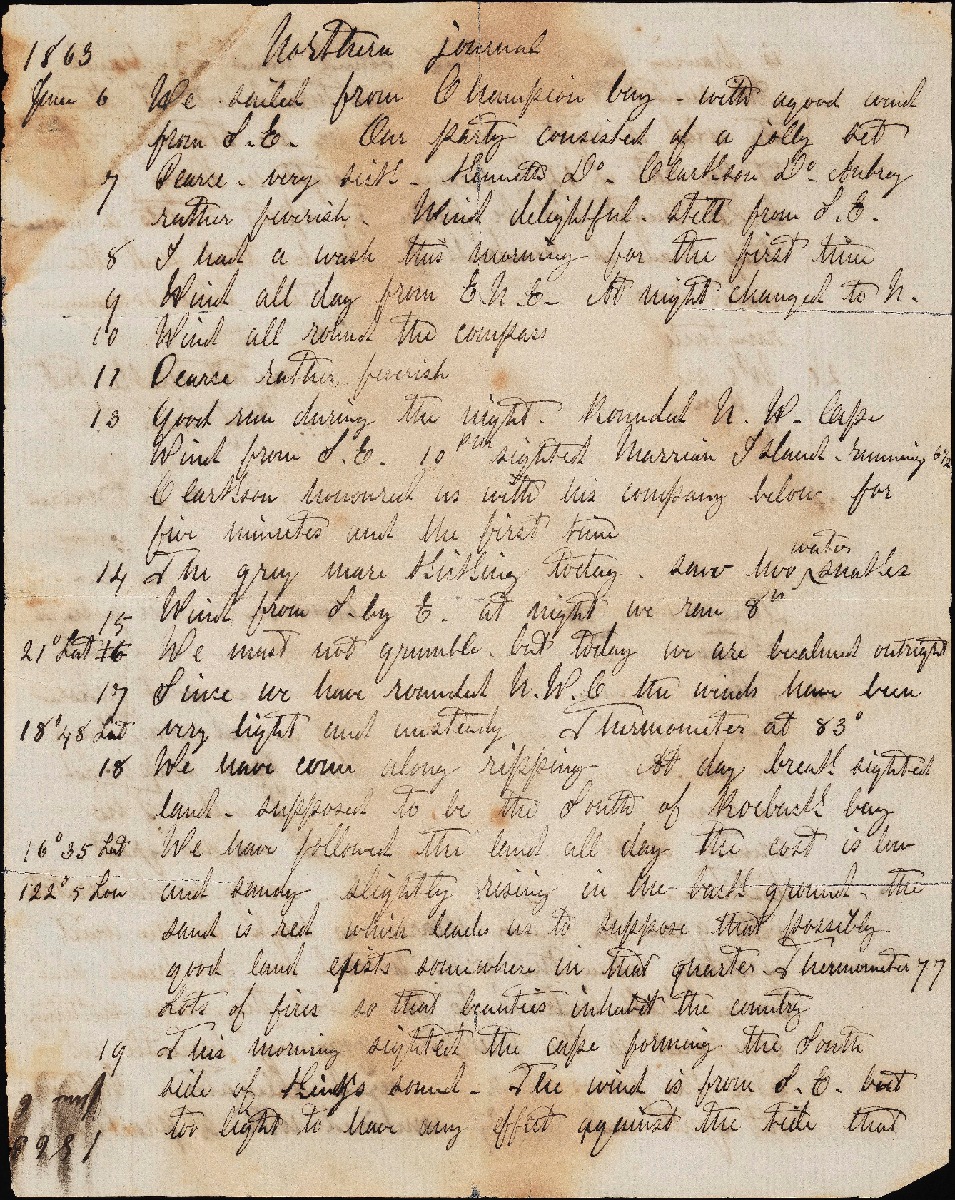 1863 Northern journal
June 6 We sailed from Champion bay - with a good wind
from S.E. Our party consisted of a jolly set
7 Pearse - very sick - Hametts Do. Clarkson Do. Aubrey
rather feverish - Wind delightful still from S.E.
8 I had a wash this morning for the first time
9 Wind all day from E.N.E - At night changed to N.
10 Wind all round the compass
11 Pearse rather feverish
13 Good run during the night. Rounded N.W. Cape
Wind from S.E. 10 pm sighted Marrian Island - running
Clarkson honoured us with his company below for
five minutes and the first time
14 The grey mare kicking today. saw two water snakes
15 Wind from S. by E. at night we ran 8
21° Lat 16 We must not grumble - but today we are becalmed outright
17 Since we have rounded N.W.C the winds have been
18°48 Lat very light and unsteady Thermometer at 83°
18 We have come along ripping - At day break sighted
land - supposed to be the South of Roebuck bay
16°35 Lat We have followed the land all day the cost is low
122°5 Lon and sandy slightly rising in the back ground - the
sand is red which leads us to suppose that possibly
good land exists somewhere in that quarter - Thermometer 77
Lots of fires so that beauties inhabit the country
19 This morning sighted the cape forming the South
side of King's sound - The wind is from S.E. but
too light to have any effect against the tide that